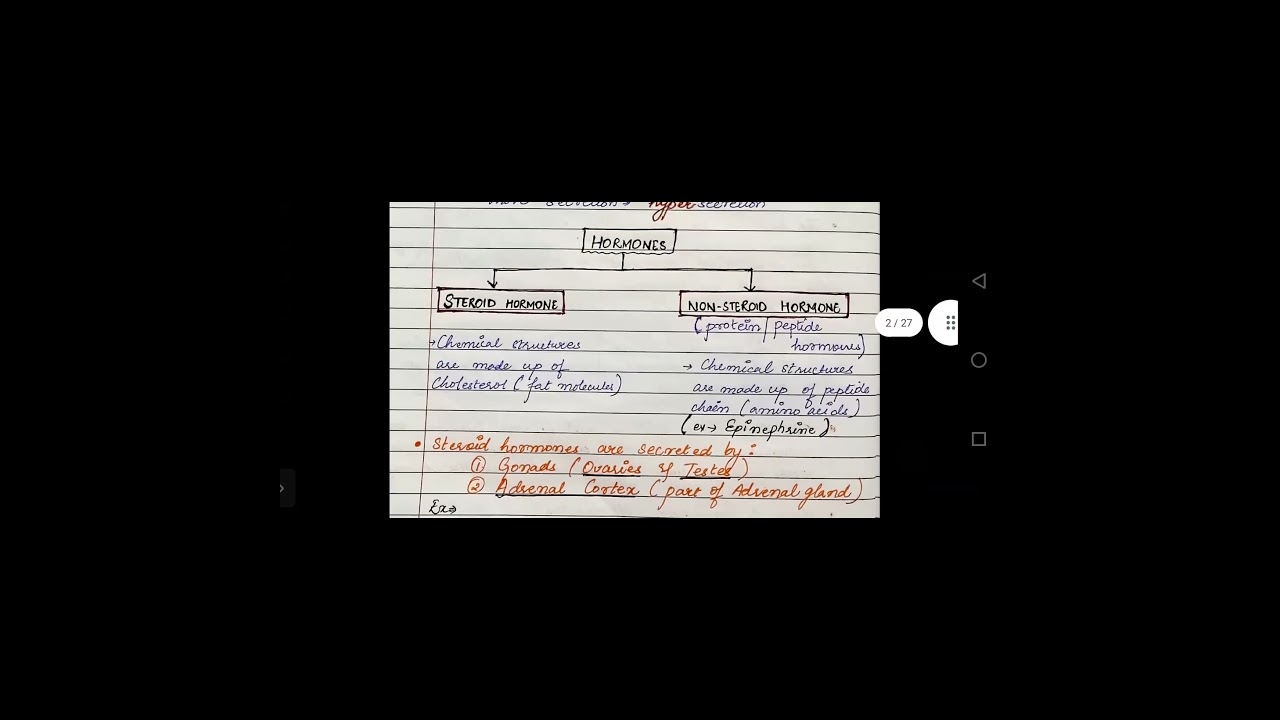 hypersecretion
HORMONES
STEROID HORMONE
NON-STEROID HORMONE
(protein/peptide
hormones)
→ Chemical structures
are made up of
Cholesterol (fat molecules)
→ Chemical structures
are made up of peptide
chain (amino acids)
(ex → Epinephrine)
2 / 27
• Steroid hormones are secreted by:
① Gonads (Ovaries & Testes)
② Adrenal Cortex (part of Adrenal gland)
Ex⇒